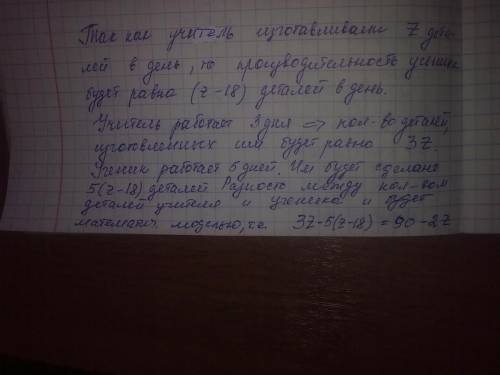 Так как учитель изготавливает z дета-
лей в день, то производительность ученика
будет равна (z-18) деталей в день.
Учитель работает 3 дня => кол-во деталей,
изготовленных им будет равно 3z.
Ученик работает 5 дней. Им будет сделано
5(z-18) деталей Разность между кол-вом
деталей учителя и ученика и будет
математич. моделью, т.е. 3z-5(z-18)=90-2z